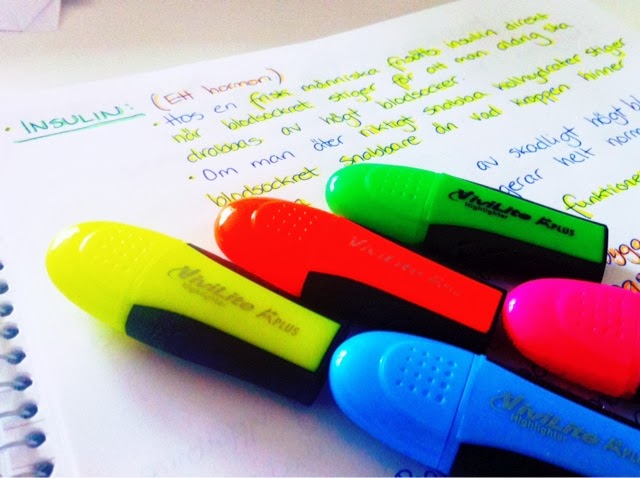 • INSULIN: (Ett hormon)
• Hos en frisk människa frisätts insulin direkt
när blodsockret stiger för att man aldrig ska
drabbas av högt blodsocker.
• Om man äter riktigt snabba kolhydrater stiger
blodsockret snabbare än vad kroppen hinner
av skadligt högt
helt
ViviLite PLUS
Highlighter
ViviLite
ViviLite PLUS
Highlighter
ViviLite PLUS
Highlighter